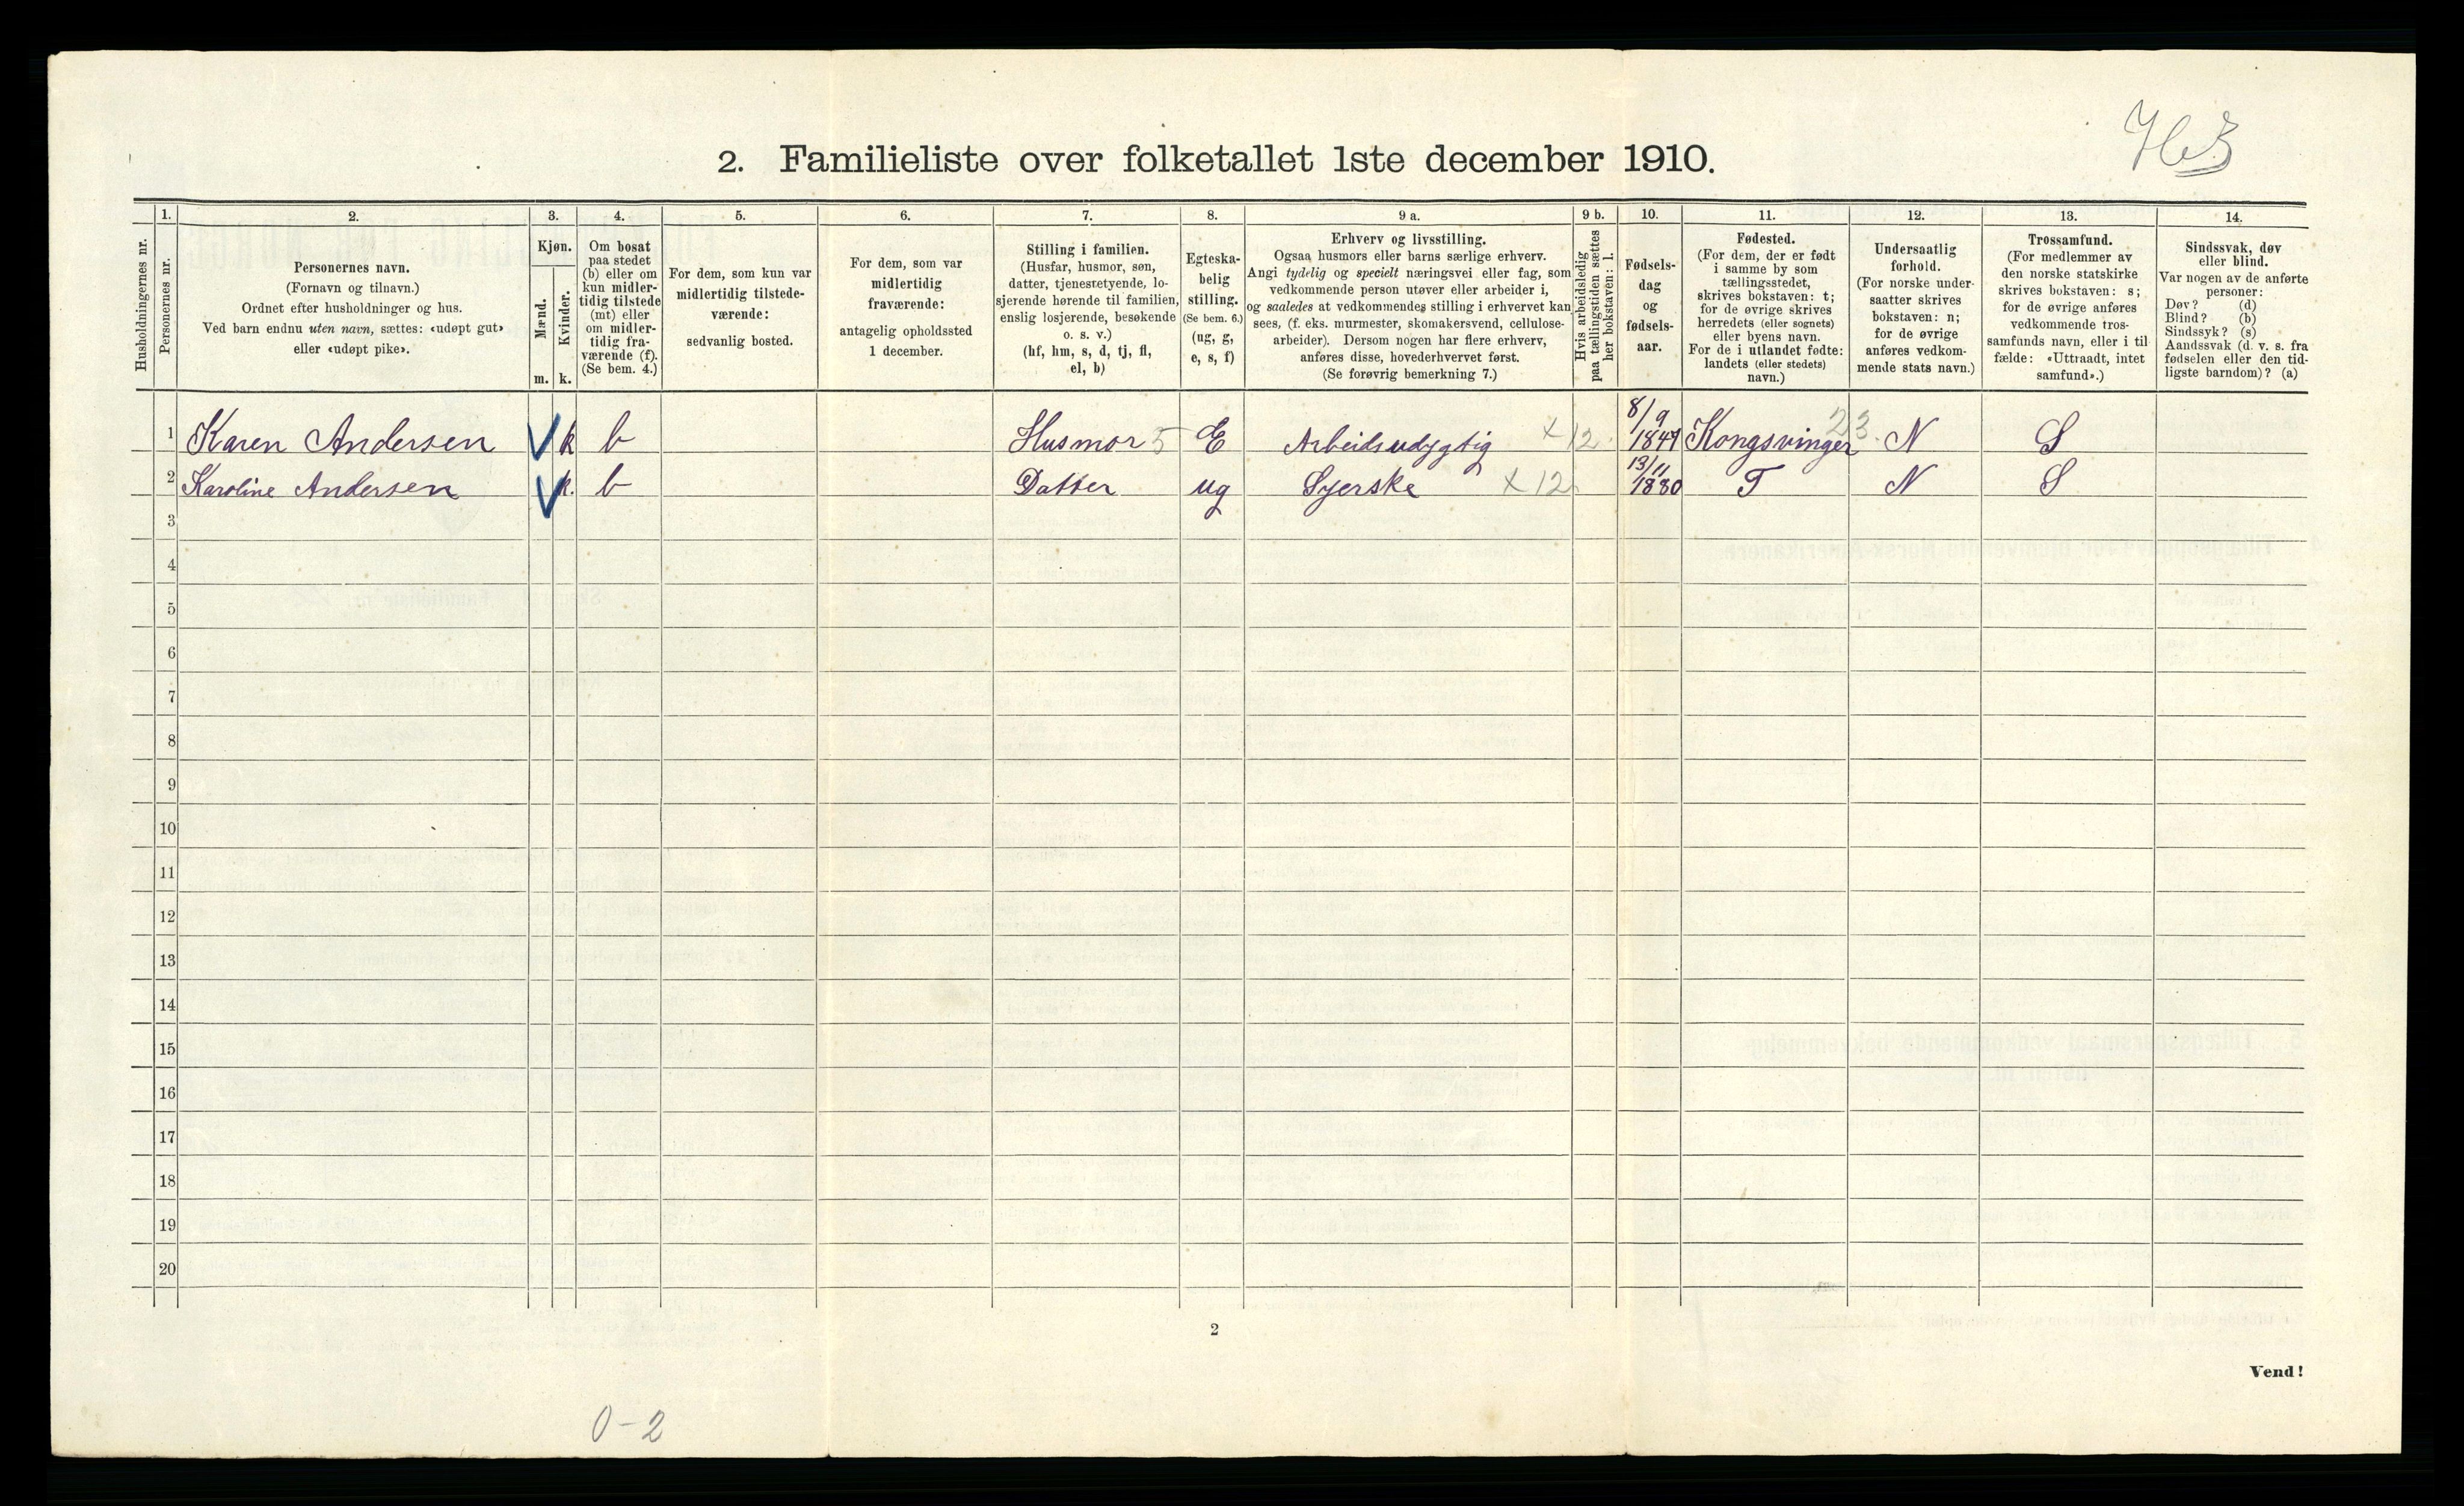 2. Familieliste over folketallet 1ste december 1910.
Husholdningernes nr.
1.
Personernes nr.
2.
Personernes navn.
(Fornavn og tilnavn.)
Ordnet efter husholdninger og hus.
Ved barn endnu uten navn, sættes: «udøpt gut»
eller «udøpt pike».
3.
Kjøn.
Mænd.
Kvinder.
m.
k.
4.
Om bosat
paa stedet
(b) eller om
kun midler-
tidig tilstede
(mt) eller
om midler-
tidig fra-
værende (f).
(Se bem. 4.)
5.
For dem, som kun var
midlertidig tilstede-
værende:
sedvanlig bosted.
6.
For dem, som var
midlertidig
fraværende:
antagelig opholdssted
1 december.
7.
Stilling i familien.
(Husfar, husmor, søn,
datter, tjenestetyende, lo-
sjerende hørende til familien,
enslig losjerende, besøkende
o. s. v.)
(hf, hm, s, d, tj, fl,
el, b)
8.
Egteska-
belig
stilling.
(Se bem. 6.)
(ug, g,
e, s, f)
9 a.
Erhverv og livsstilling.
Ogsaa husmors eller barns særlige erhverv.
Angi tydelig og specielt næringsvei eller fag, som
vedkommende person utøver eller arbeider i,
og saaledes at vedkommendes stilling i erhvervet kan
sees, (f. eks. murmester, skomakersvend, cellulose-
arbeider). Dersom nogen har flere erhverv,
anføres disse, hovederhvervet først.
(Se forøvrig bemerkning 7.)
9 b.
Hvis arbeidsledig
paa tællingstiden sættes
her bokstaven: l.
10.
Fødsels-
dag
og
fødsels-
aar.
11.
Fødested.
(For dem, der er født
i samme by som
tællingsstedet,
skrives bokstaven: t;
for de øvrige skrives
herredets (eller sognets)
eller byens navn.
For de i utlandet fødte:
landets (eller stedets)
navn.)
12.
Undersaatlig
forhold.
(For norske under-
saatter skrives
bokstaven: n;
for de øvrige
anføres vedkom-
mende stats navn.)
13.
Trossamfund.
(For medlemmer av
den norske statskirke
skrives bokstaven: s;
for de øvrige anføres
vedkommende tros-
samfunds navn, eller i til-
fælde: «Uttraadt, intet
samfund».)
14.
Sindssvak, døv
eller blind.
Var nogen av de anførte
personer:
Døv? (d)
Blind? (b)
Sindssyk? (s)
Aandssvak (d. v. s. fra
fødselen eller den tid-
ligste barndom)? (a)
1 Karen Andersen k b Husmor 5 E Arbeidsudygtig x 12 8/9 Kongsvinger 23 N S
2 Karoline Andersen k. b Datter ug Syerske x 12 13/11 1880 T N S
3
4
5
6
7
8
9
10
11
12
13
14
15
16
17
18
19
20
2
Vend!
0-2